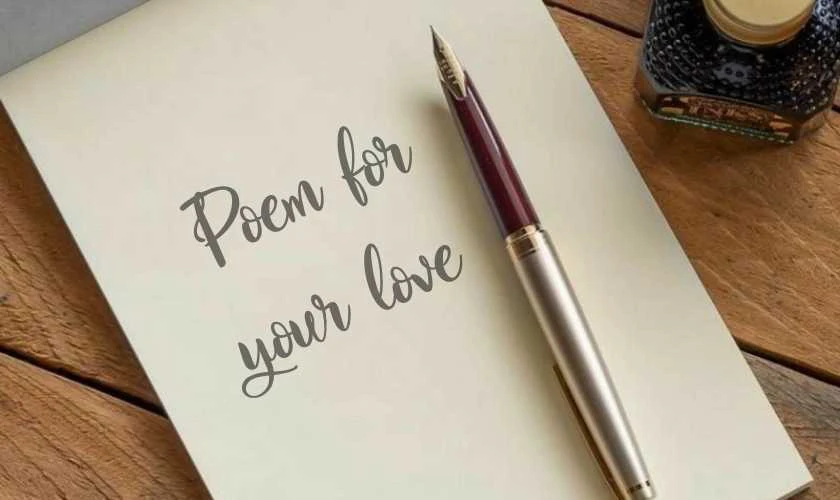 Poem for
your love